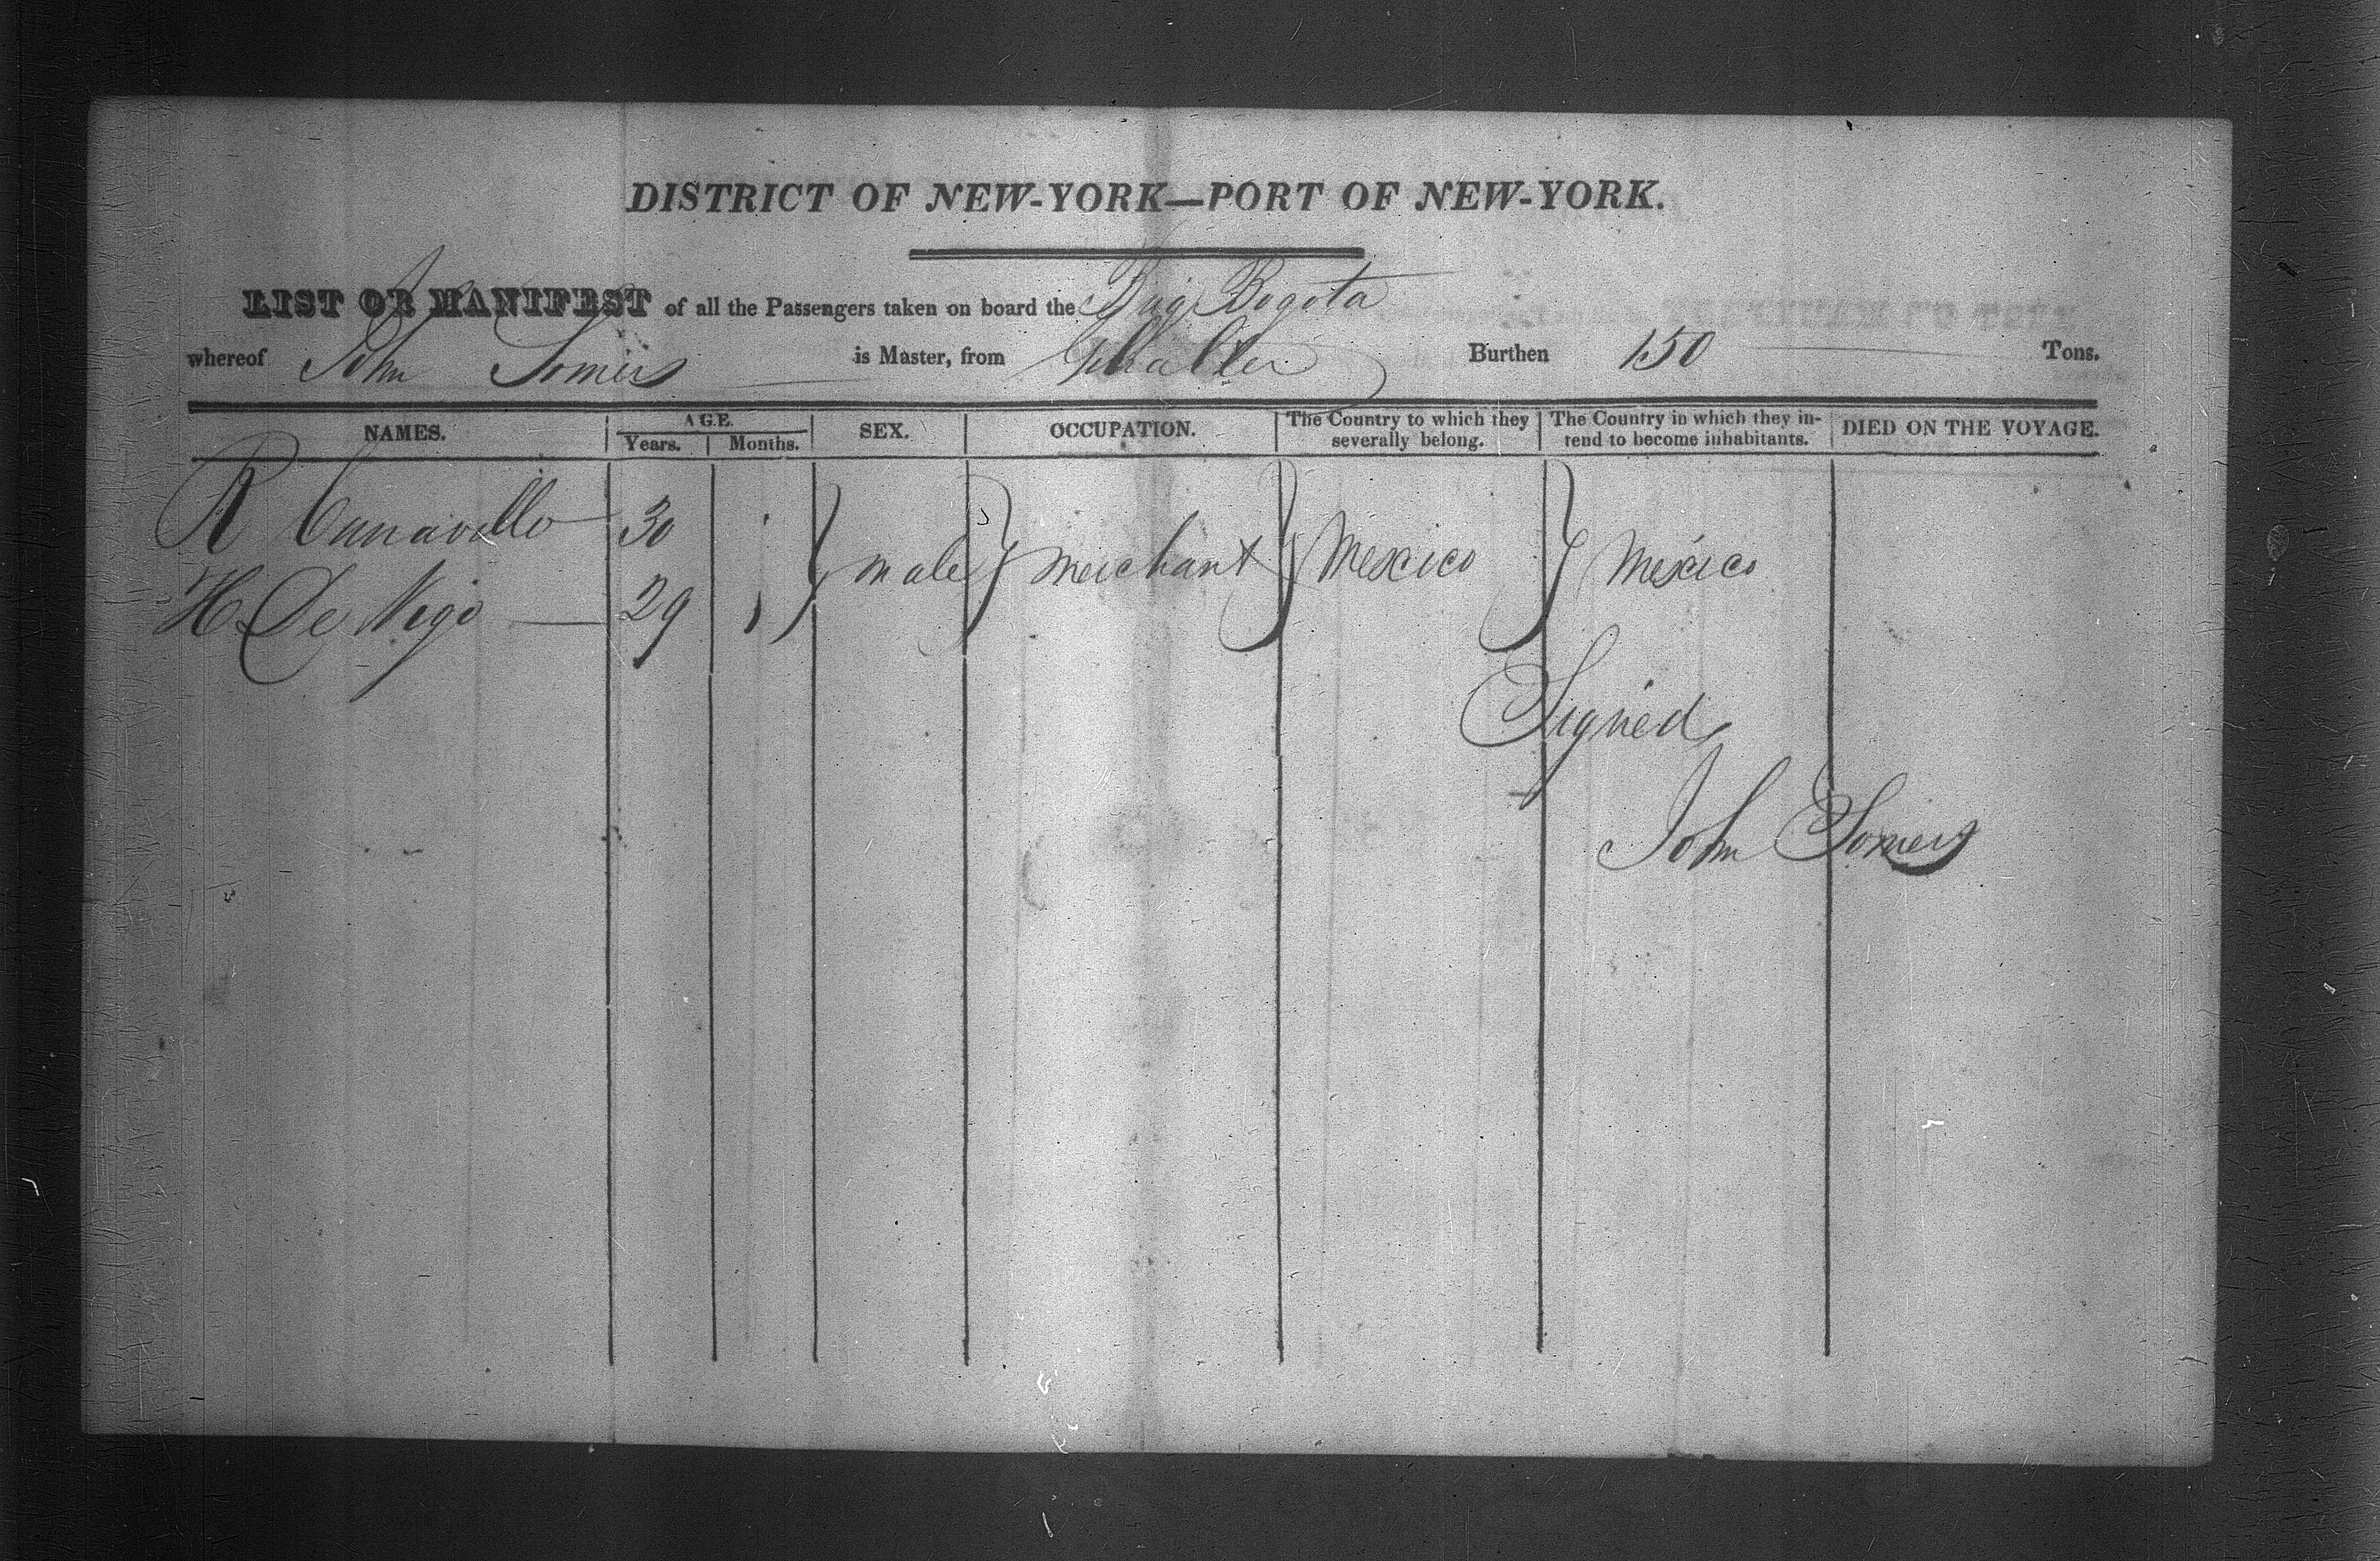 DISTRICT OF NEW-YORK—PORT OF NEW-YORK.
LIST OR MANIFEST of all the Passengers taken on board the Brig Bogota
whereof John Somers is Master, from Burthen 150 Tons.
NAMES. AGE. Years. Months. SEX. OCCUPATION. The Country to which they severally belong. The Country in which they intend to become inhabitants. DIED ON THE VOYAGE.
R 30
H De 29
male merchant Mexico Mexico
Signed
John Somers